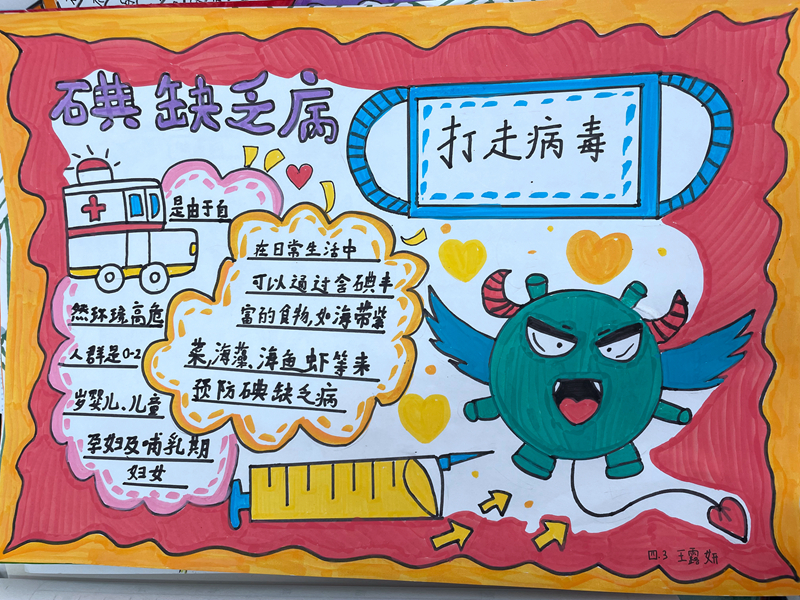 碘缺乏病
打走病毒
是由于自
然环境高危
人群是0-2
岁婴儿、儿童
孕妇及哺乳期
妇女
在日常生活中
可以通过含碘丰
富的食物,如海带紫
菜,海藻、海鱼、虾等来
预防碘缺乏病
四.3 王露妍